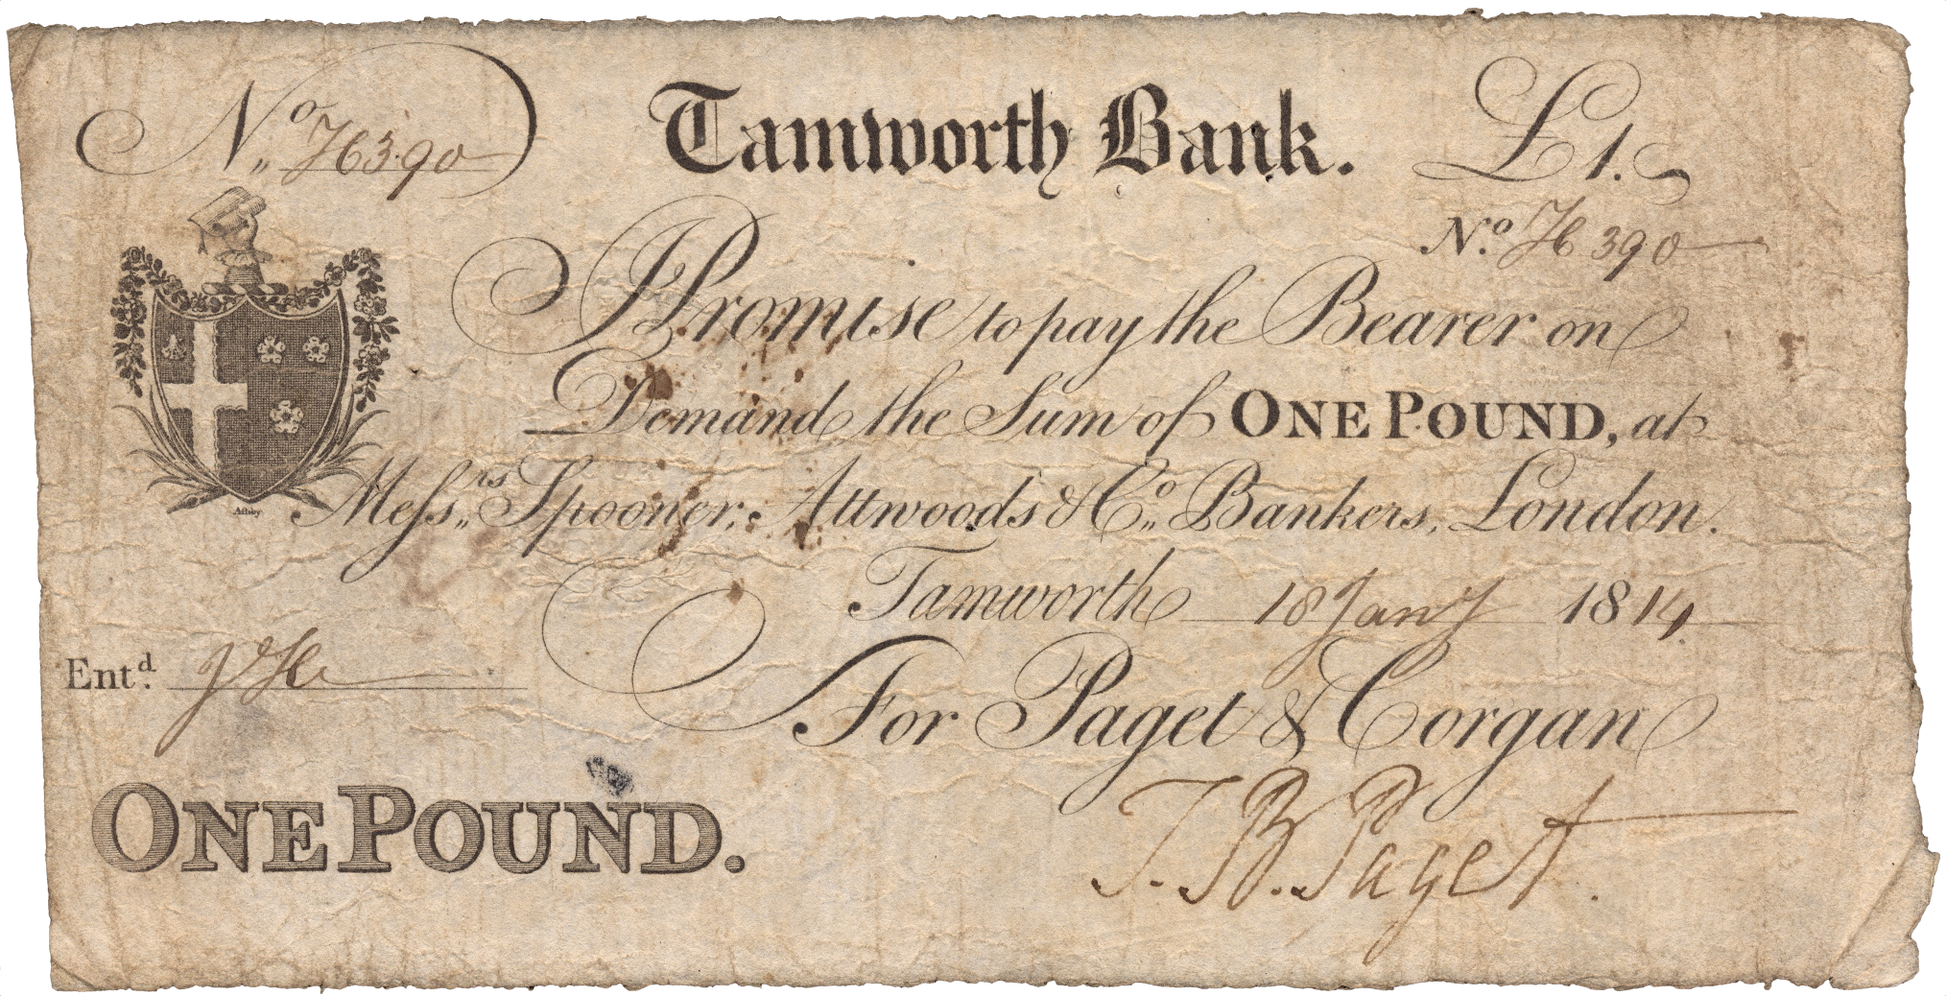 No. H390
Tamworth Bank.
£1.
No. H390
I Promise to pay the Bearer on
Demand the Sum of ONE POUND, at
Messrs. Spooner, Attwoods & Co. Bankers, London.
Tamworth 18 Jany 1814
Entd.
For Paget & Corgan
ONE POUND.
T. B. Paget.